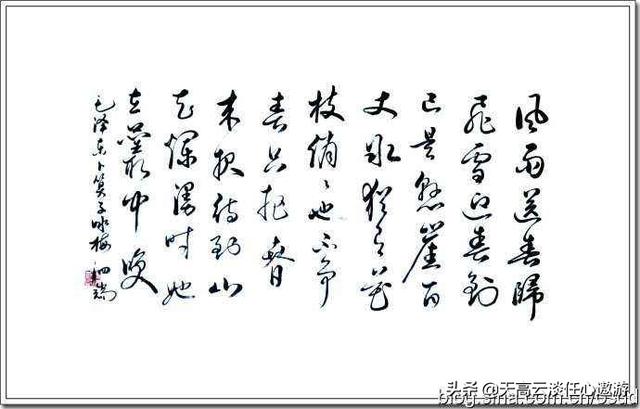 風雨送春歸
飛雪迎春到
已是懸崖百
丈冰猶有花
枝俏〻也不爭
春只把春
来报待到山
花爛漫时她
在叢中笑
毛泽东卜算子咏梅
头条 @天高云淡任心遨游
blog.sina.com.cn/